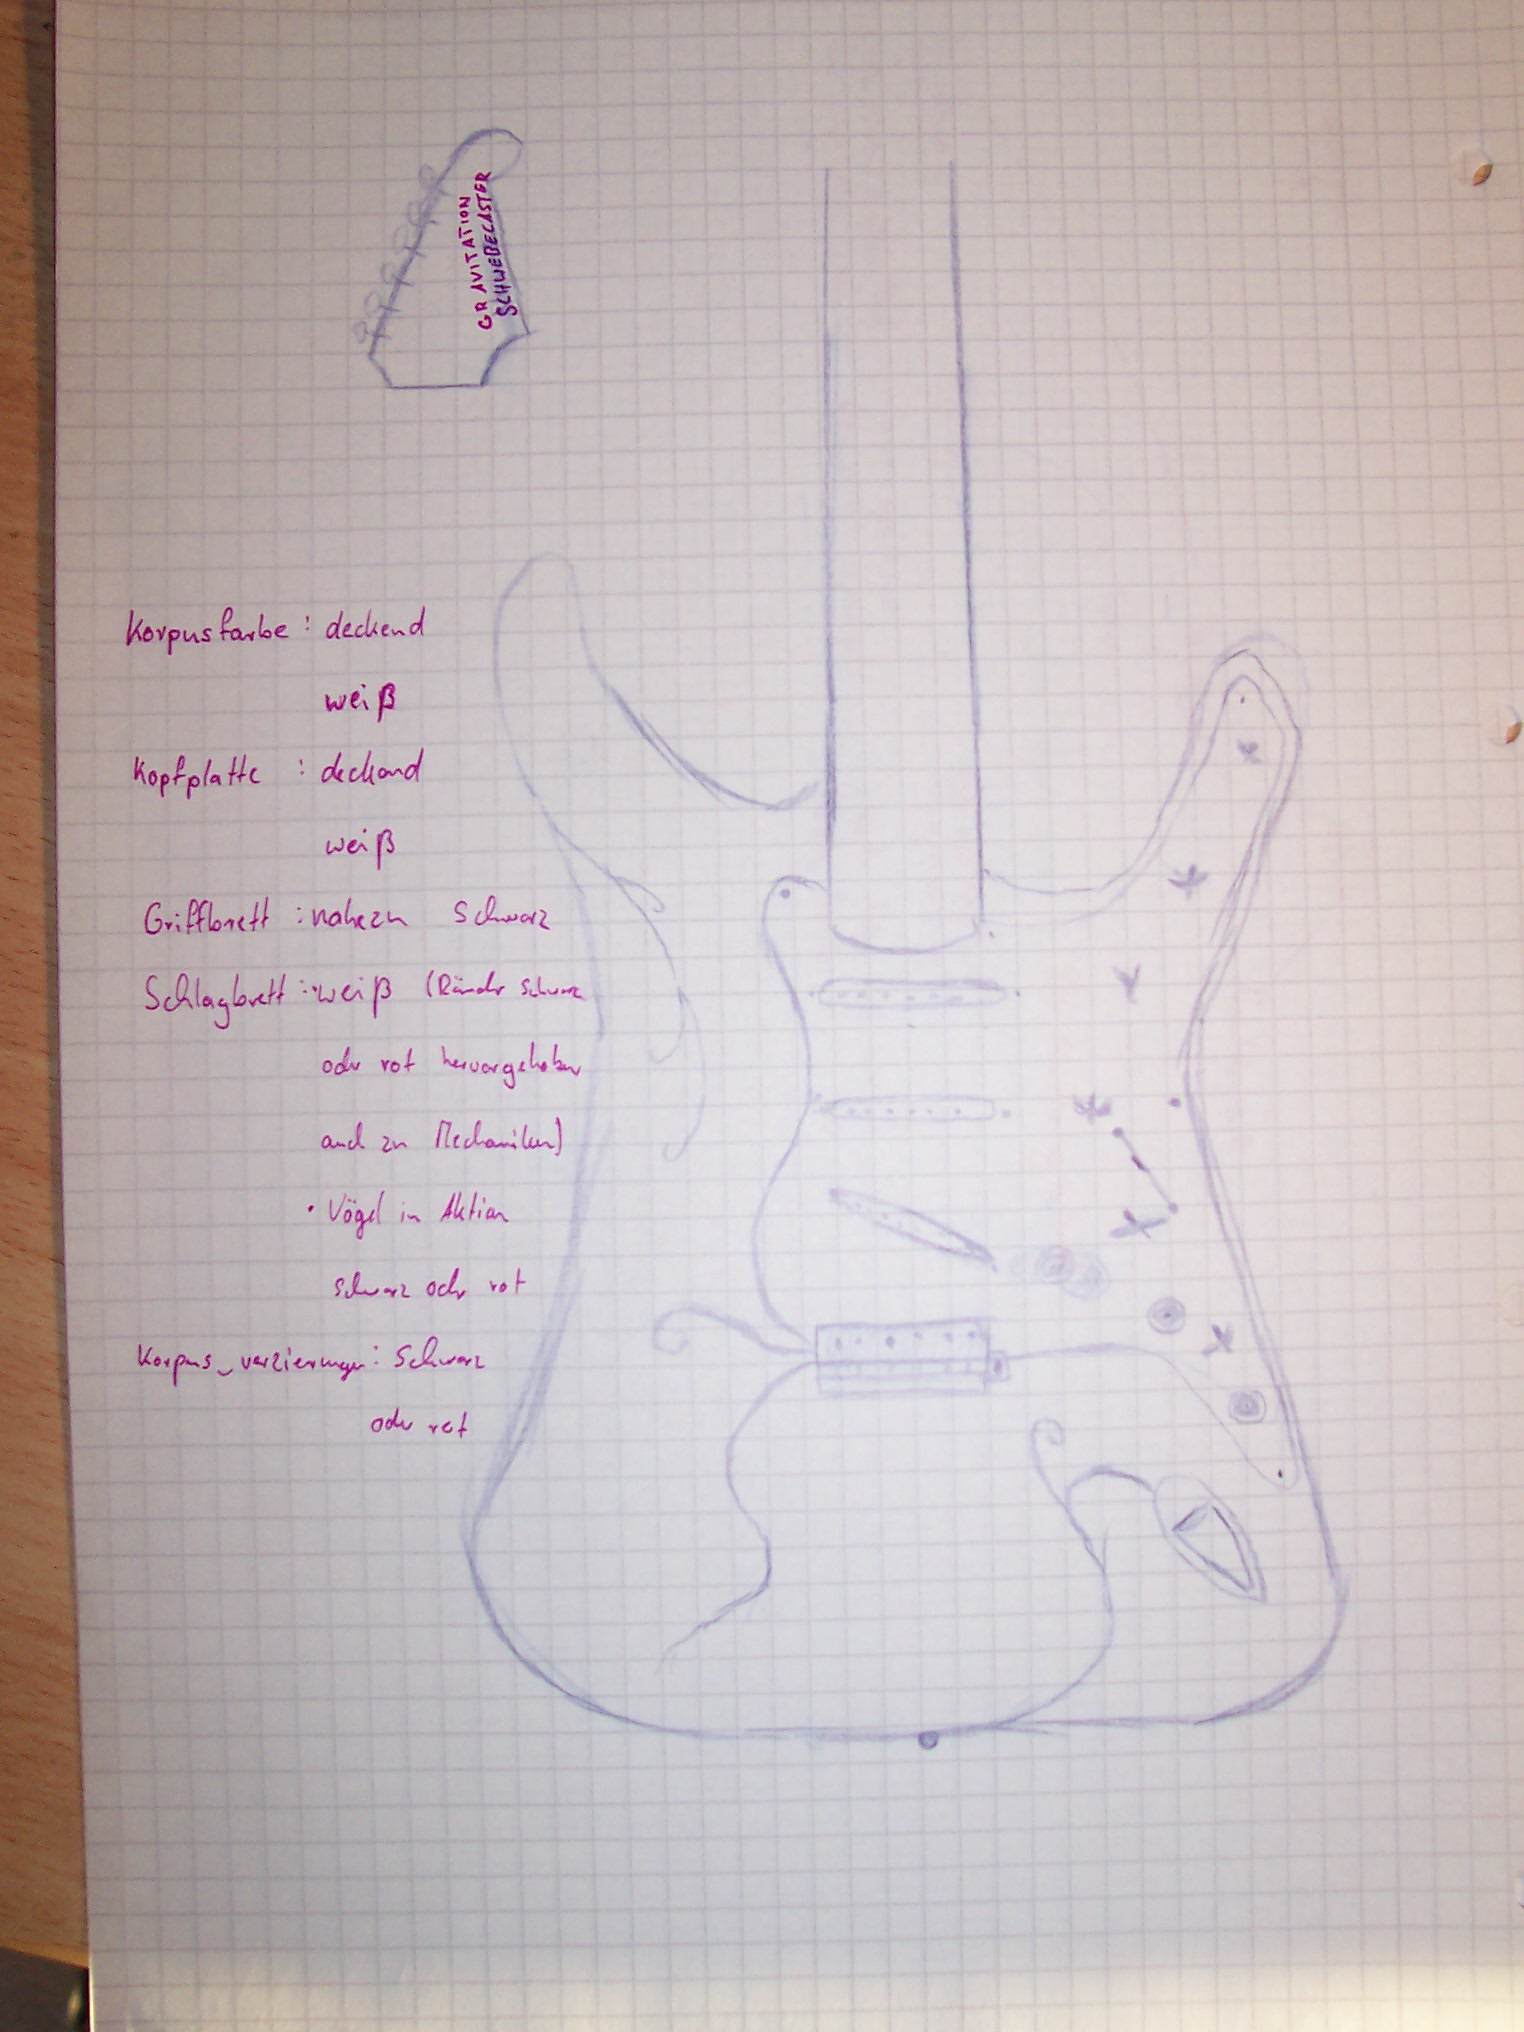 GRAVITATION
SCHWEBECASTER
Korpusfarbe : deckend
weiß
Kopfplatte : deckend
weiß
Griffbrett : nahezu Schwarz
Schlagbrett : weiß (Ränder schwarz
oder rot hervorgehoben
auch zu Mechaniken)
• Vögel in Aktion
schwarz oder rot
Korpus_verzierungen : Schwarz
oder rot